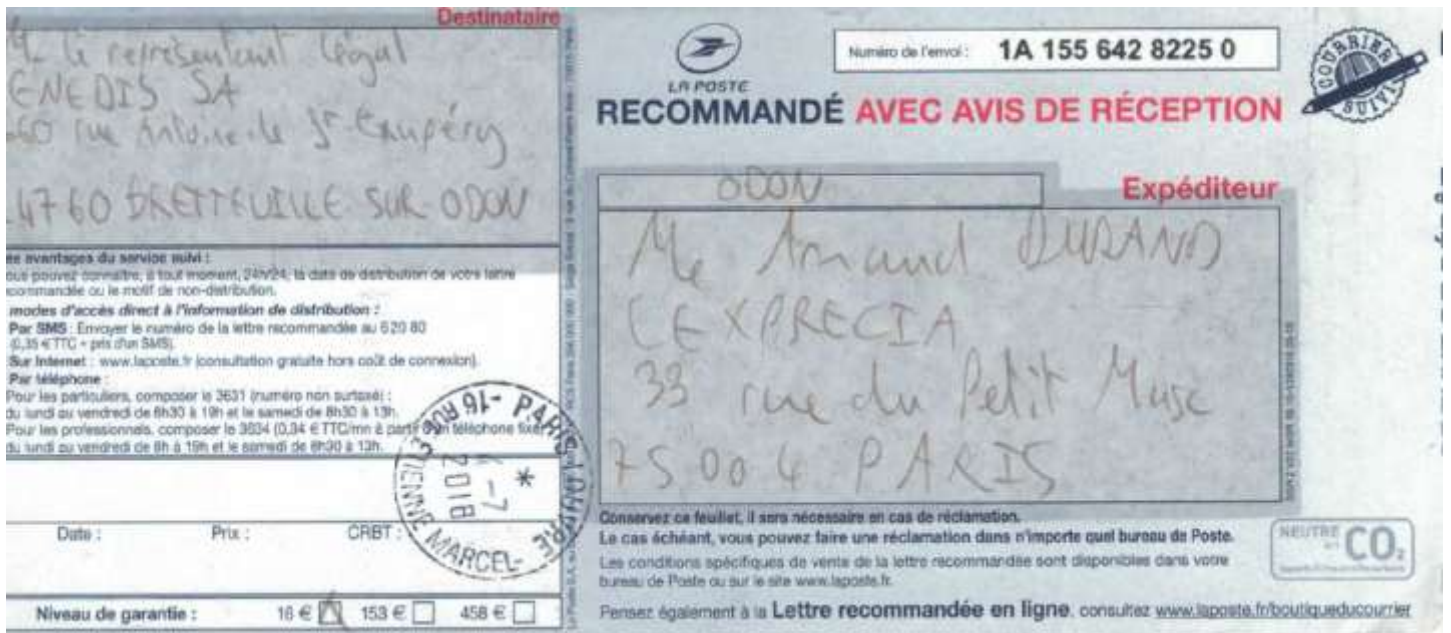 Destinataire
le représentant légal
ENEDIS SA
60 rue Antoine de St-Exupéry
14760 BRETTEVILLE SUR ODON
es avantages du service suivi :
ous pouvez connaître, à tout moment, 24h/24, la date de distribution de votre lettre
ecommandée ou le motif de non-distribution.
modes d'accès direct à l'information de distribution :
Par SMS : Envoyer le numéro de la lettre recommandée au 620 80
(0,35 € TTC + prix d'un SMS).
Sur Internet : www.laposte.fr (consultation gratuite hors coût de connexion).
Par téléphone :
Pour les particuliers, composer le 3631 (numéro non surtaxé) :
du lundi au vendredi de 8h30 à 19h et le samedi de 8h30 à 13h.
Pour les professionnels, composer le 3634 (0,34 € TTC/mn à partir d'un téléphone fixe)
du lundi au vendredi de 8h à 19h et le samedi de 8h30 à 13h.
PARIS LOUVRE
16 RUE ETIENNE MARCEL
-7
2018
Date : Prix : CRBT :
Niveau de garantie : 16 € 153 € 458 €
LA POSTE
Numéro de l'envoi : 1A 155 642 8225 0
COURRIER SUIVI
RECOMMANDÉ AVEC AVIS DE RÉCEPTION
ODON
Expéditeur
Me Arnaud DURAND
LEXPRECIA
33 rue du Petit Musc
75004 PARIS
Conservez ce feuillet, il sera nécessaire en cas de réclamation.
Le cas échéant, vous pouvez faire une réclamation dans n'importe quel bureau de Poste.
Les conditions spécifiques de vente de la lettre recommandée sont disponibles dans votre
bureau de Poste ou sur le site www.laposte.fr.
NEUTRE CO2
Pensez également à la Lettre recommandée en ligne, consultez www.laposte.fr/boutiqueducourrier